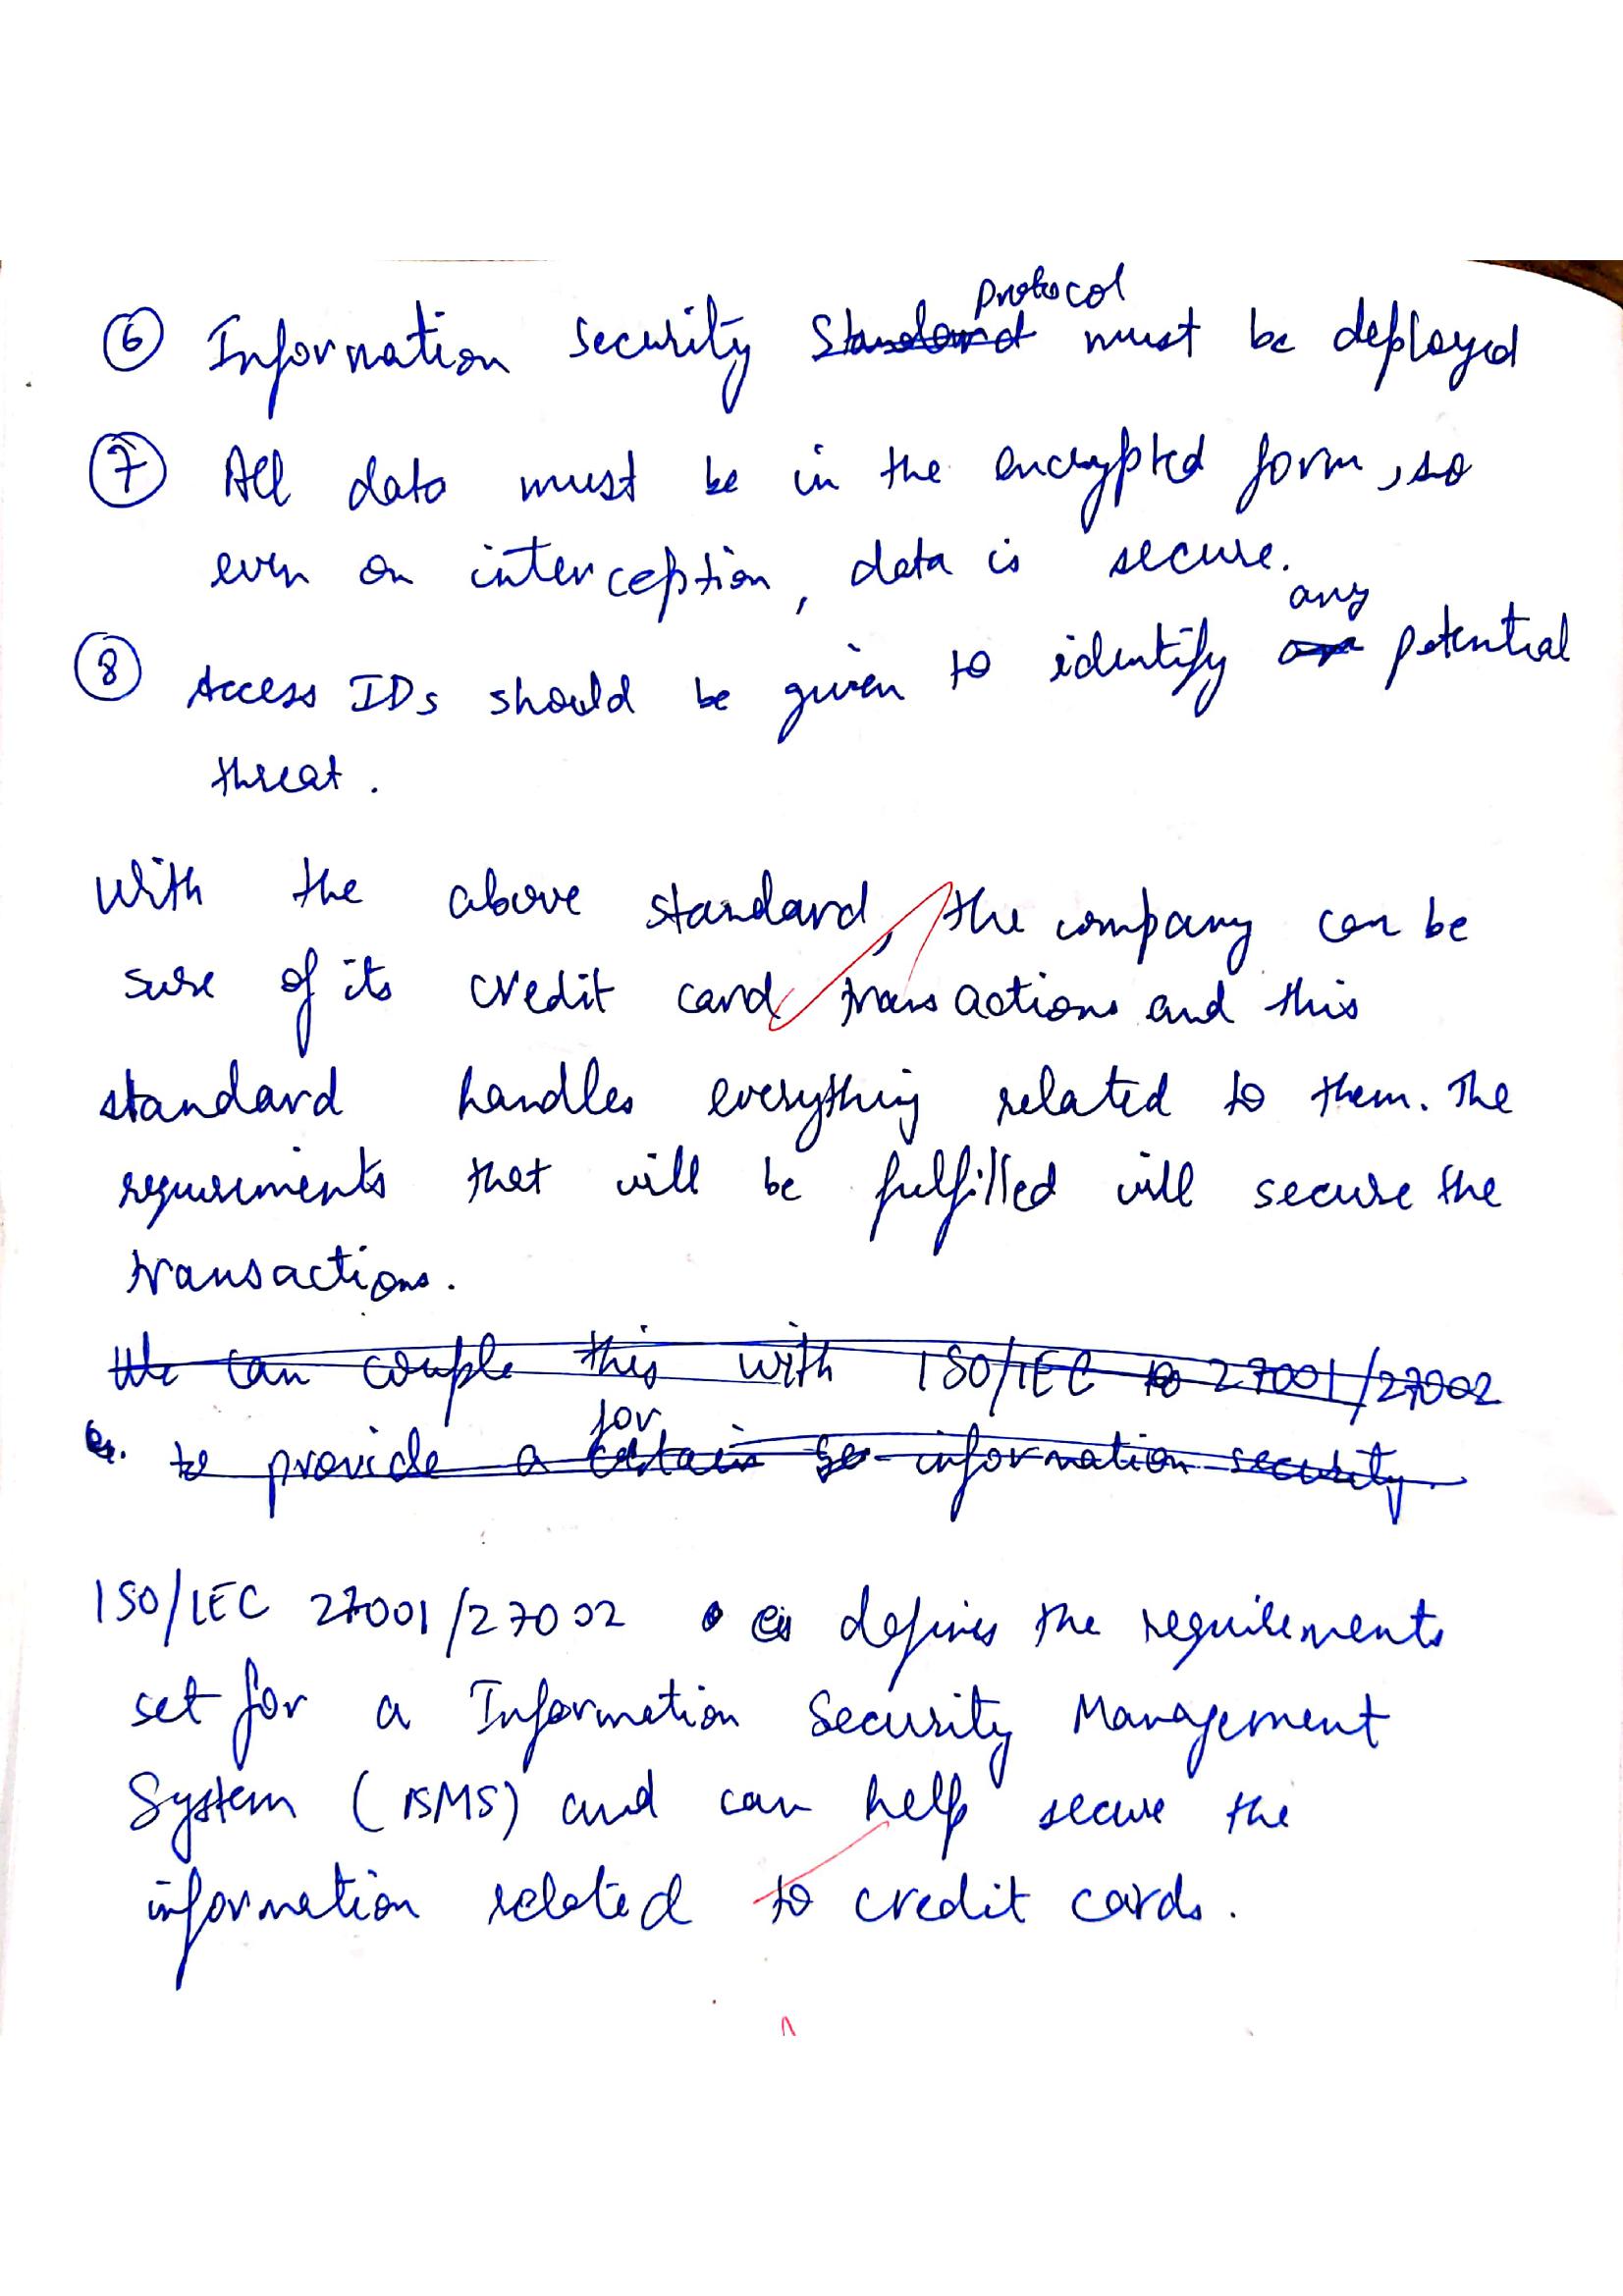 ⑥ Information security ~~Standard~~ protocol must be deployed
⑦ All data must be in the encrypted form, so
even on interception, data is secure.
⑧ Access IDs should be given to identify any potential
threat.
With the above standard, the company can be
sure of its credit card transactions and this
standard handles everything related to them. The
requirements that will be fulfilled will secure the
transactions.
~~We can couple this with ISO/IEC 27001/27002~~
~~to provide a for information security.~~
ISO/IEC 27001/27002 defines the requirements
set for a Information Security Management
System (ISMS) and can help secure the
information related to credit cards.